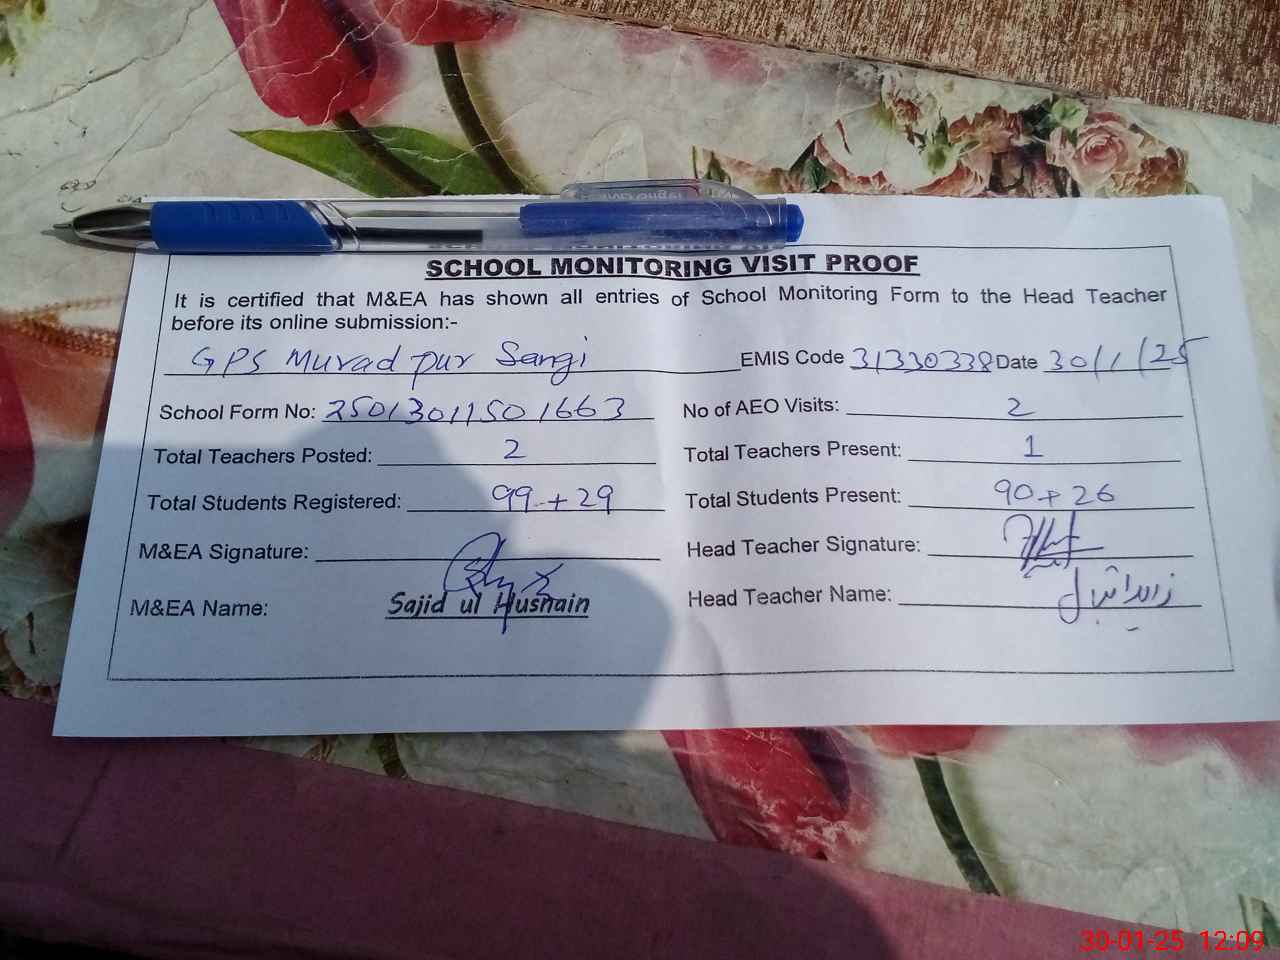 SCHOOL MONITORING VISIT PROOF
It is certified that M&EA has shown all entries of School Monitoring Form to the Head Teacher
before its online submission:-
GPS Murad pur Sangi EMIS Code 31330338 Date 30/1/25
School Form No: 2501301150 1663 No of AEO Visits: 2
Total Teachers Posted: 2 Total Teachers Present: 1
Total Students Registered: 99+29 Total Students Present: 90+26
M&EA Signature: Head Teacher Signature:
M&EA Name: Sajid ul Husnain Head Teacher Name: زاہد اقبال
30-01-25 12:09